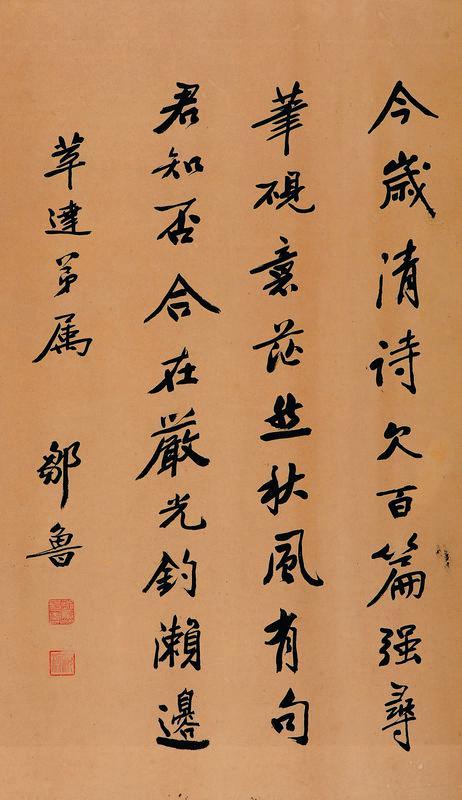 今歲清詩欠百篇强尋
筆硯意茫然秋風有句
君知否合在嚴光釣瀨邊
達弟属 鄒魯